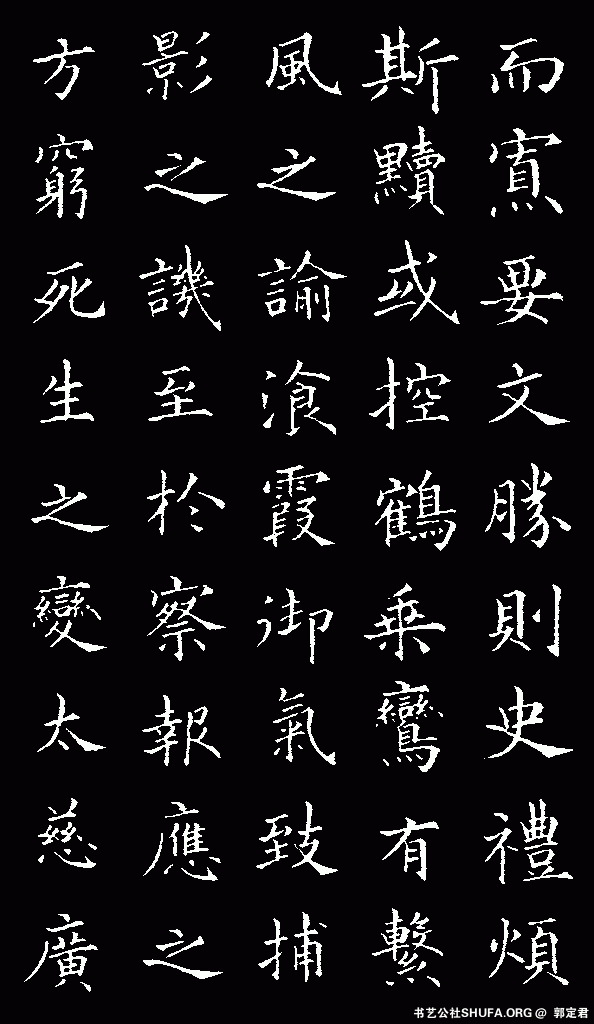 而寡要文勝則史禮煩
斯黷或控鶴乗鸞有繫
風之諭湌霞御氣致捕
影之譏至於察報應之
方窮死生之變太慈廣
书艺公社SHUFA.ORG @ 郭定君